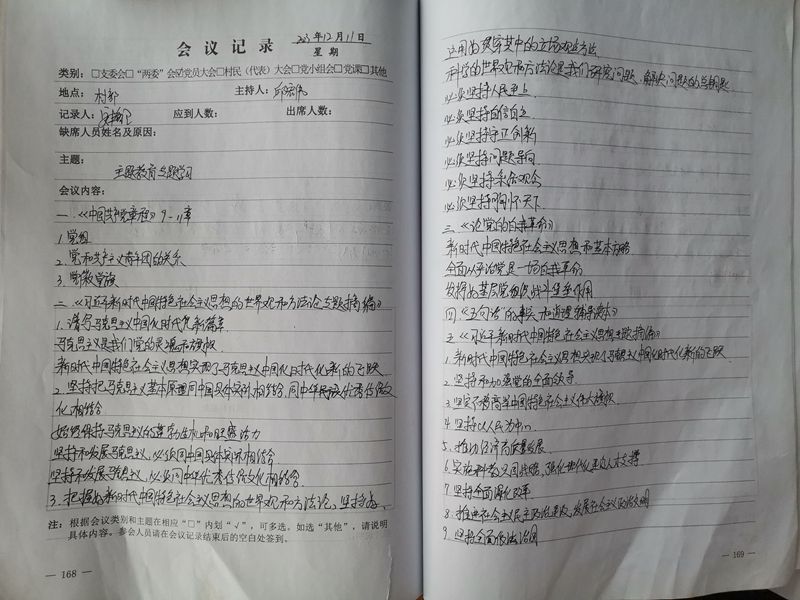 会议记录
2023年12月11日
星期
类别：□支委会□“两委”会☑党员大会□村民（代表）大会□党小组会□党课□其他
地点：村部 主持人：邱
记录人： 应到人数： 出席人数：
缺席人员姓名及原因：
主题：
主题教育专题学习
会议内容：
一.《中国共产党章程》9-11章
1.党组
2.党和共产主义青年团的关系
3.党徽党旗
二.《习近平新时代中国特色社会主义思想的世界观和方法论专题摘编》
1.谱写马克思主义中国化时代化新篇章
马克思主义是我们党的灵魂和旗帜
新时代中国特色社会主义思想实现了马克思主义中国化时代化新的飞跃
2.坚持把马克思主义基本原理同中国具体实际相结合、同中华民族优秀传统文
化相结合
始终保持马克思主义的蓬勃生机和旺盛活力
坚持和发展马克思主义，必须同中国具体实际相结合
坚持和发展马克思主义，必须同中华优秀传统文化相结合
3.把握好新时代中国特色社会主义思想的世界观和方法论，坚持好、
注：根据会议类别和主题在相应“□”内划“√”，可多选。如选“其他”，请说明
具体内容。参会人员请在会议记录结束后的空白处签到。
— 168 —
运用好贯穿其中的立场观点方法
科学的世界观和方法论是我们研究问题、解决问题的总钥匙
必须坚持人民至上
必须坚持自信自立
必须坚持守正创新
必须坚持问题导向
必须坚持系统观念
必须坚持胸怀天下
三.《论党的自我革命》
新时代中国特色社会主义思想和基本方略
全面从严治党是一场自我革命
发挥好基层党组织战斗堡垒作用
四.《五句话的事实和道理辅导读本》
五.《习近平新时代中国特色社会主义思想专题摘编》
1.新时代中国特色社会主义思想实现了马克思主义中国化时代化新的飞跃
2.坚持和加强党的全面领导
3.坚定不移高举中国特色社会主义伟大旗帜
4.坚持以人民为中心
5.推动经济高质量发展
6.实施科教兴国战略，强化现代化建设人才支撑
7.坚持全面深化改革
8.推进社会主义民主政治建设，发展社会主义政治文明
9.坚持全面依法治国
— 169 —